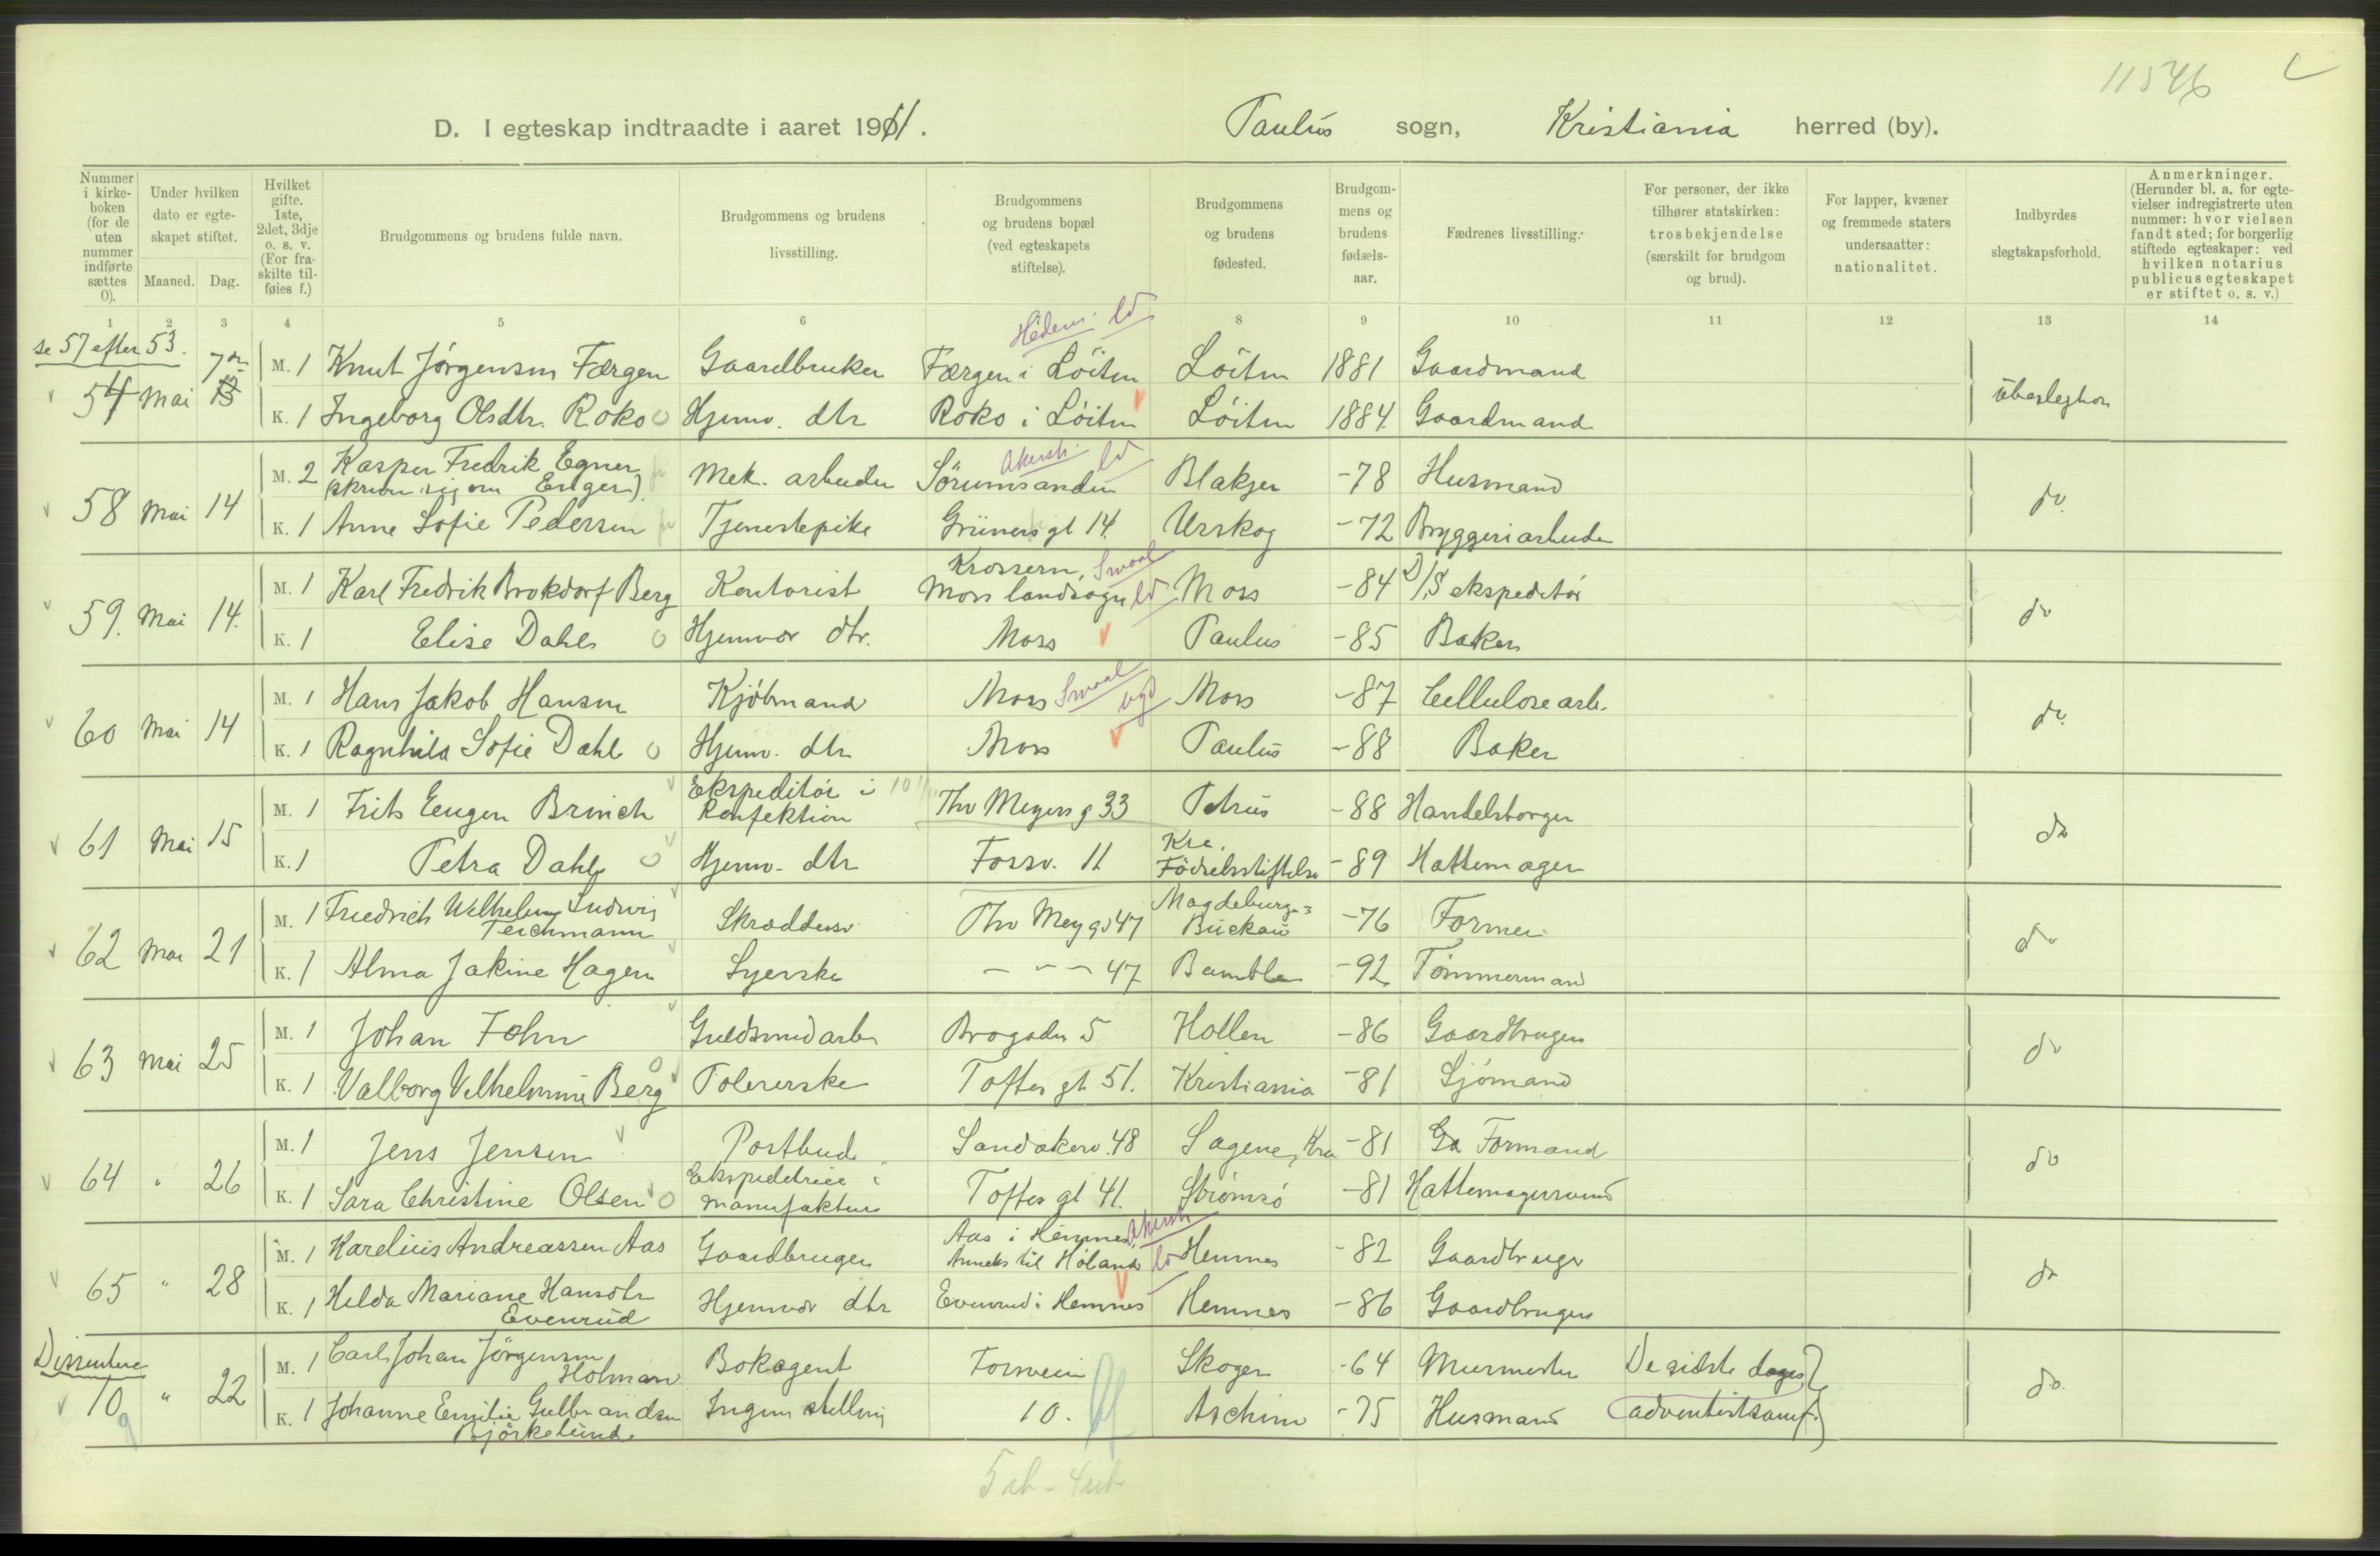 11546
D. I egteskap indtraadte i aaret 1911. Paulus sogn, Kristiania herred (by).
Nummer i kirkeboken (for de uten nummer indførte sættes 0).
Under hvilken dato er egteskapet stiftet.
Maaned. Dag.
Hvilket gifte. 1ste, 2det, 3dje o. s. v. (For fraskilte tilføies f.)
Brudgommens og brudens fulde navn.
Brudgommens og brudens livsstilling.
Brudgommens og brudens bopæl (ved egteskapets stiftelse).
Brudgommens og brudens fødested.
Brudgommens og brudens fødselsaar.
Fædrenes livsstilling.
For personer, der ikke tilhører statskirken: trosbekjendelse (særskilt for brudgom og brud).
For lapper, kvæner og fremmede staters undersaatter: nationalitet.
Indbyrdes slegtskapsforhold.
Anmerkninger. (Herunder bl. a. for egtevielser indregistrerte uten nummer: hvor vielsen fandt sted; for borgerlig stiftede egteskaper: ved hvilken notarius publicus egteskapet er stiftet o. s. v.)
1 2 3 4 5 6 8 9 10 11 12 13 14
se 57 efter 53.
Hedem. ld
54 Mai 7 M. 1 Knut Jørgensen Færgen Gaardbruker Færgen i Løiten Løiten 1881 Gaardmand
K. 1 Ingeborg Olsdtr. Roko Hjemv. dtr Roko i Løiten Løiten 1884 Gaardmand ubeslegtet
58 Mai 14 M. 2 Kasper Fredrik Egner (skriver sig om Enger) Mek. arbeider Sørumsanden Akersh ld Blakjer -78 Husmand do
K. 1 Anne Sofie Pedersen Tjenestepike Grüners gt 14. Urskog -72 Bryggeriarbeider
59. Mai 14. M. 1 Karl Fredrik Brokdorf Berg Kontorist Krossern, Moss landsogn Smaal ld Moss -84 D/S ekspeditør do
K. 1 Elise Dahl Hjemvær dtr. Moss Paulus -85 Baker
60 Mai 14 M. 1 Hans Jakob Hansen Kjøbmand Moss Smaal Moss -87 Cellulosearb. do
K. 1 Ragnhild Sofie Dahl Hjemv. dtr Moss Paulus -88 Baker
61 Mai 15 M. 1 Frits Eugen Brinch Ekspeditør i Konfektion Thv Meyers g 33 Petrus -88 Handelsborger do
K. 1 Petra Dahl Hjemv. dtr Fossv. 11 Kra. Fødselsstiftelse -89 Hattemager
62 Mai 21 M. 1 Friedrich Wilhelm Ludwig Teichmann Skræddersv Thv Mey g 47 Magdeburg-Buckau -76 Former do
K. 1 Alma Jakine Hagen Syerske - - - 47 Bamble -92 Tømmermand
63 Mai 25 M. 1 Johan Fohn Guldsmedarb Brogaden 5 Hollen -86 Gaardbruger do
K. 1 Valborg Vilhelmine Berg Polererske Toftes gt 51. Kristiania -81 Sjømand
64 " 26 M. 1 Jens Jensen Postbud Sandakerv. 48 Sagene, Kra -81 Formand do
K. 1 Sara Christine Olsen Ekspeditrice i manufaktur Toftes gt 41. Strømsø -81 Hattemagersvend
65 " 28 M. 1 Karelius Andreassen Aas Gaardbruger Aas i Hemnes, Anneks til Høland Akersh ld Hemnes -82 Gaardbruger do
K. 1 Helda Mariane Hansdtr Evenrud Hjemvær dtr Evenrud i Hemnes Hemnes -86 Gaardbruger
Dissentere
10 " 22 M. 1 Carl Johan Jørgensen Holman Bokagent Fossveien Skoger -64 Murmester De sidste dages do
K. 1 Johanne Emilie Gulbrandsen Bjørkelund Ingen stilling 10. Aschim -75 Husmand (adventistsamf.)